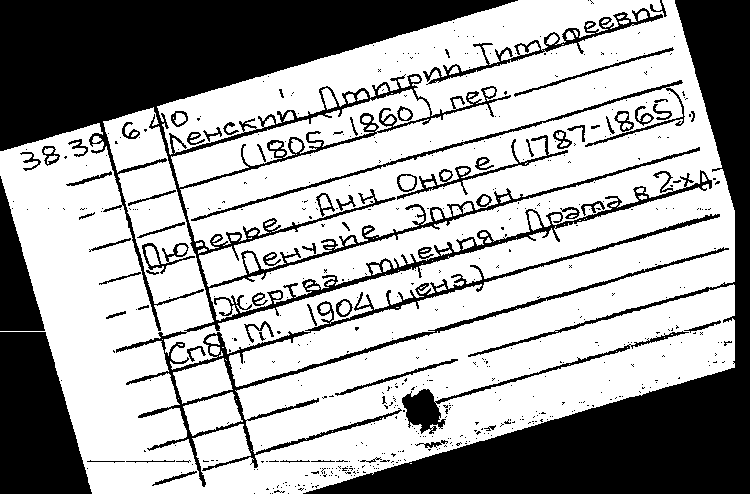 38.39.6.40.
Ленский, Дмитрий Тимофеевич
(1805-1860), пер.
Дюверье, Анн Оноре (1787-1865);
Денуайе, Элтон.
Жертва мщения: Драма в 2-х д.-
Спб; М., 1904 (ценз.)